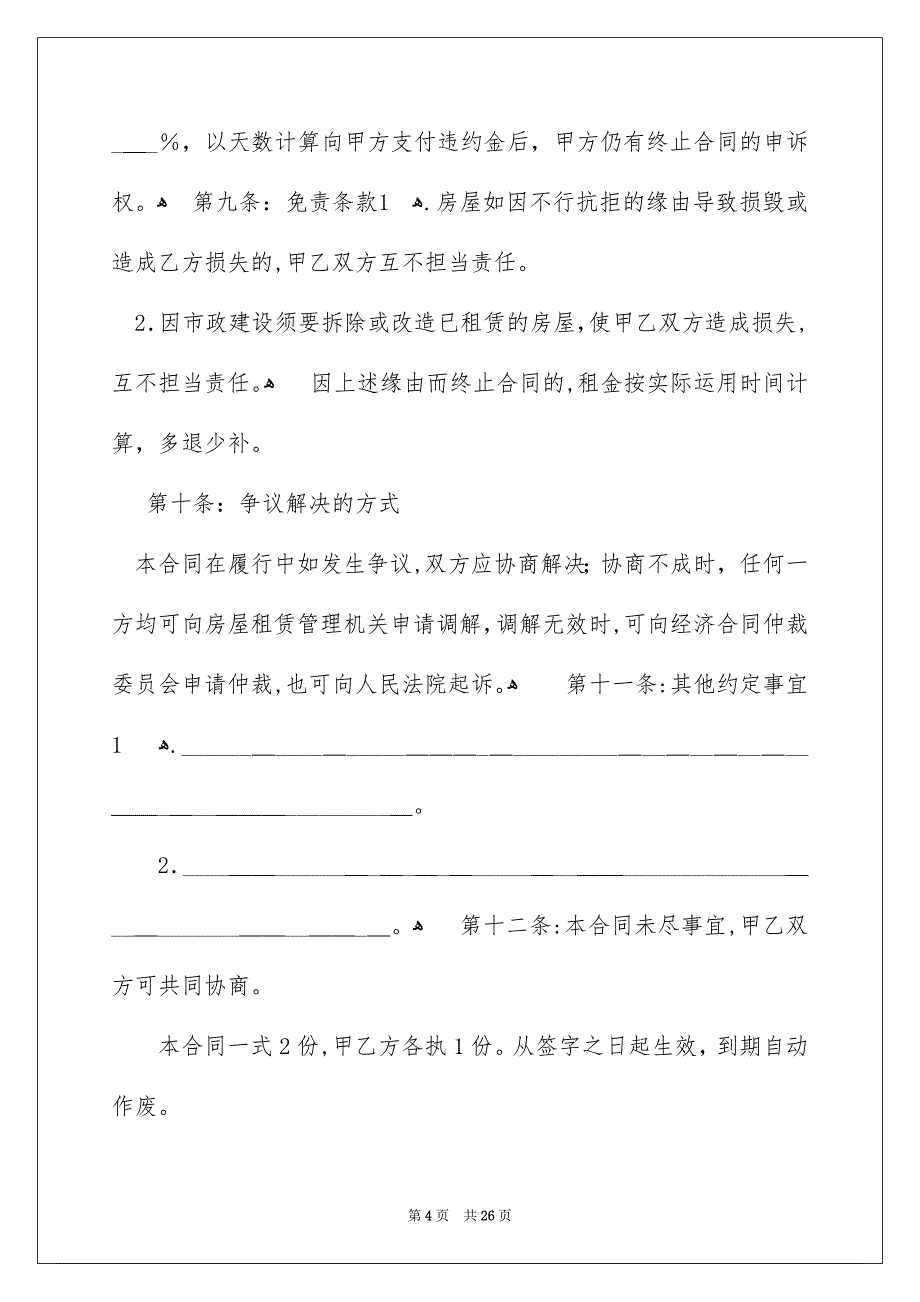 ____%，以天数计算向甲方支付违约金后，甲方仍有终止合同的申诉
权。ﻫ 第九条：免责条款1 ﻫ.房屋如因不行抗拒的缘由导致损毁或
造成乙方损失的,甲乙双方互不担当责任。
2.因市政建设须要拆除或改造已租赁的房屋,使甲乙双方造成损失,
互不担当责任。ﻫ 因上述缘由而终止合同的,租金按实际运用时间计
算，多退少补。
第十条：争议解决的方式
本合同在履行中如发生争议,双方应协商解决；协商不成时，任何一
方均可向房屋租赁管理机关申请调解,调解无效时,可向经济合同仲裁
委员会申请仲裁,也可向人民法院起诉。ﻫ 第十一条:其他约定事宜
1 ﻫ.______________________________________________________
__________________________。
2.______________________________________________________
________________________。ﻫ 第十二条:本合同未尽事宜,甲乙双
方可共同协商。
本合同一式2份,甲乙方各执1份。从签字之日起生效，到期自动
作废。
第4页 共26页